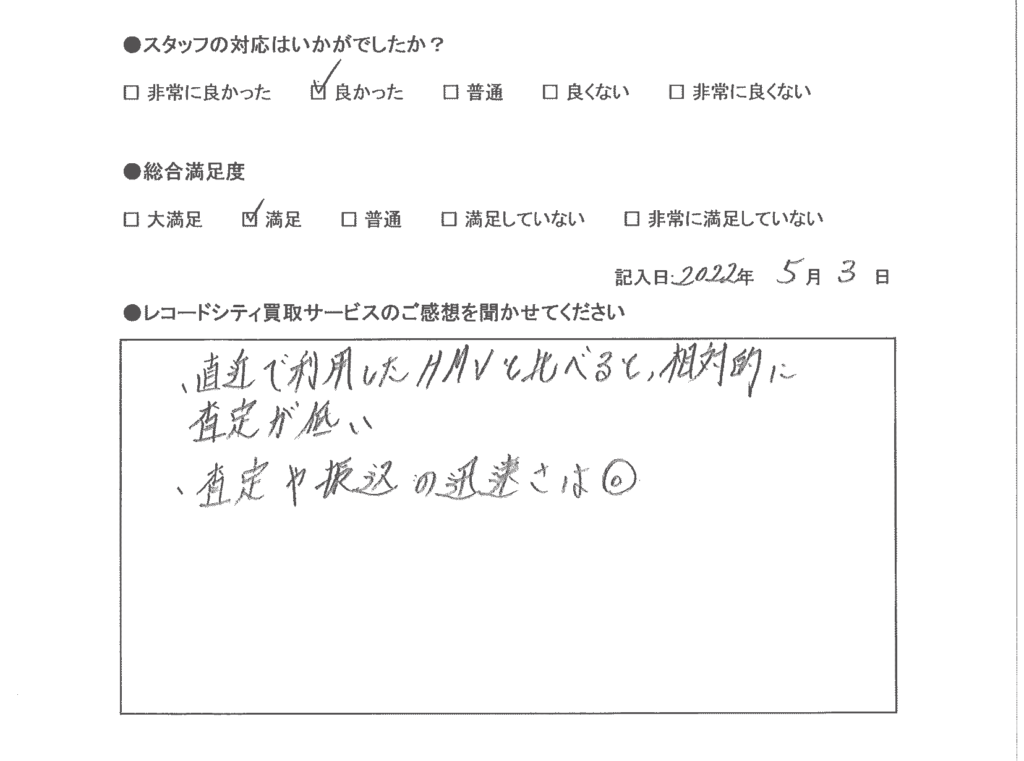 ●スタッフの対応はいかがでしたか？
□ 非常に良かった ☑ 良かった □ 普通 □ 良くない □ 非常に良くない
●総合満足度
□ 大満足 ☑ 満足 □ 普通 □ 満足していない □ 非常に満足していない
記入日:2022年 5月 3日
●レコードシティ買取サービスのご感想を聞かせてください
、直近で利用したHMVと比べると,相対的に
査定が低い
、査定や振込の迅速さは◎